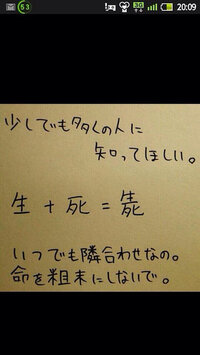 53 3G 20:09
少しでも多くの人に
知ってほしい。
生 + 死 =
いつでも隣合わせなの。
命を粗末にしないで。